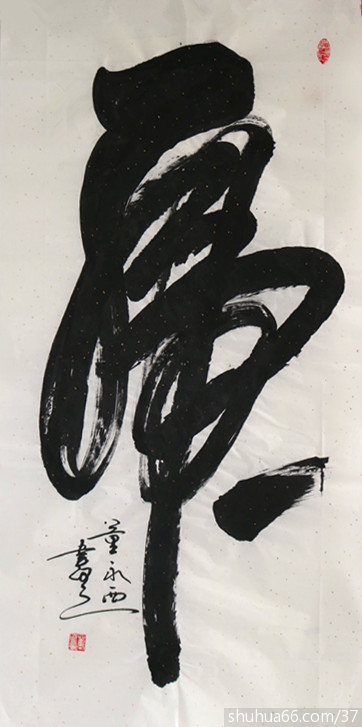 虎
董永西
書
shuhua66.com/37